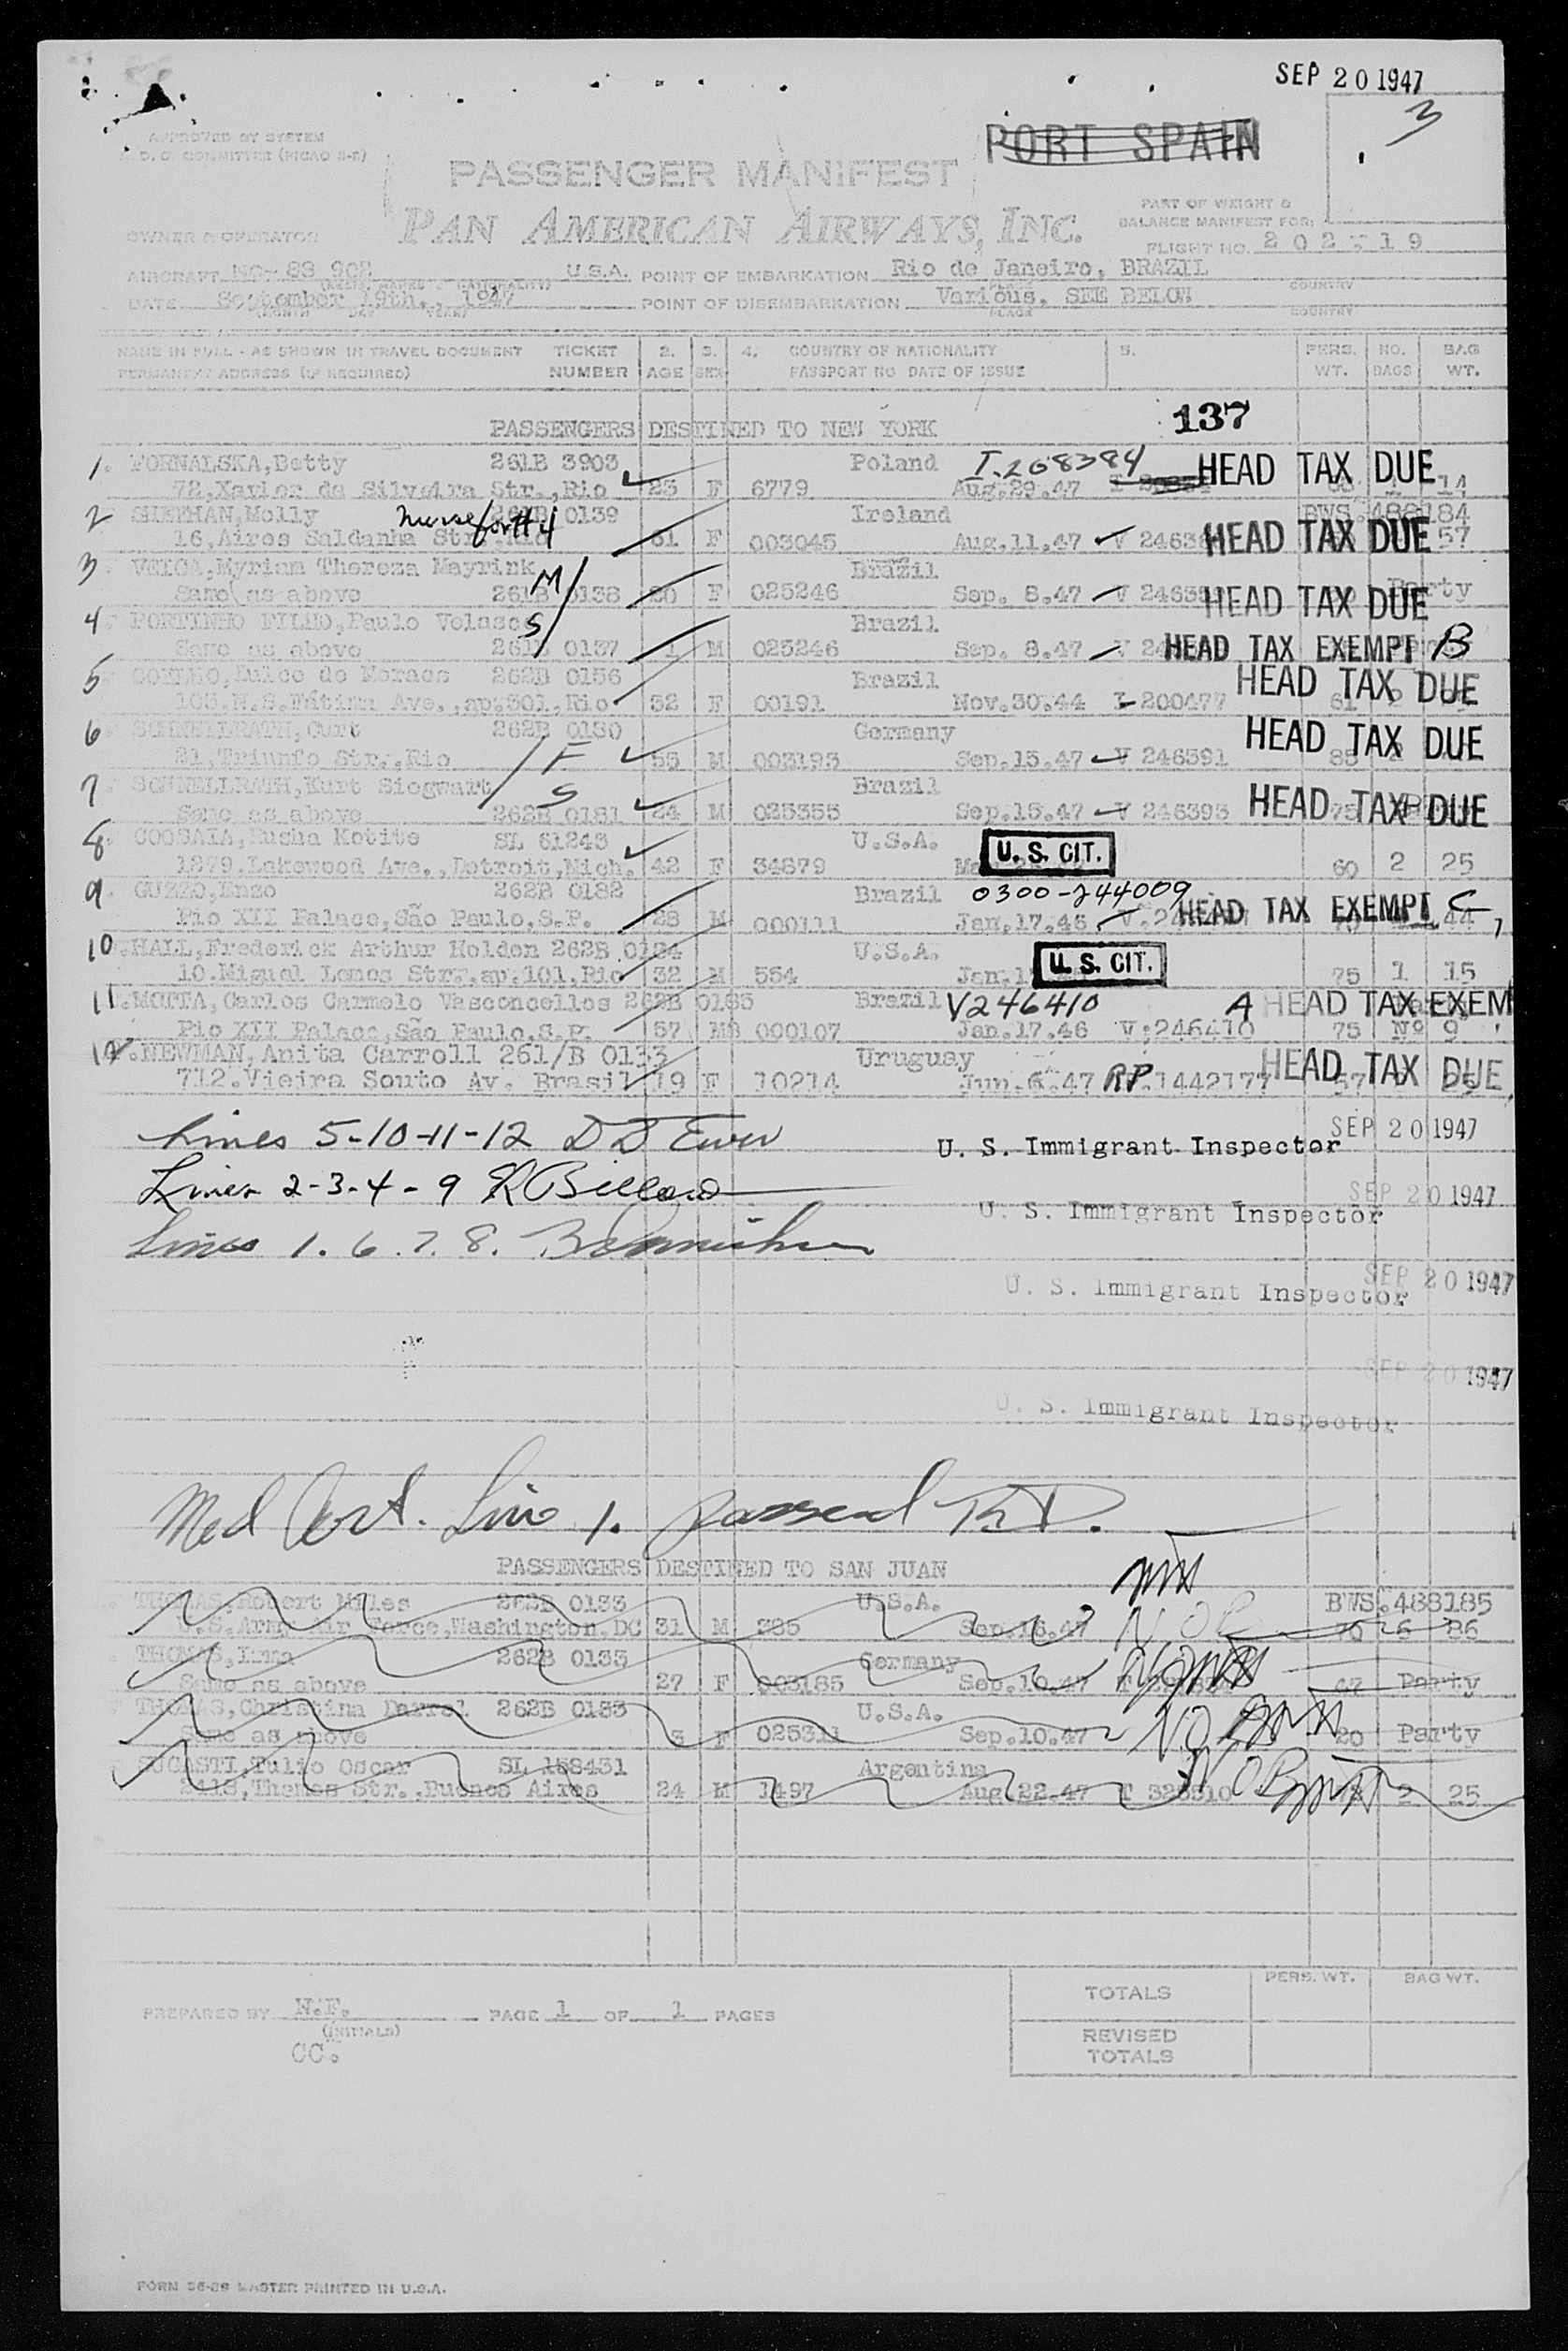 SEP 20 1947
PORT SPAIN
3
APPROVED BY SYSTEM
COMMITTEE (PICAO S-8)
PASSENGER MANIFEST
PAN AMERICAN AIRWAYS, INC.
PART OF WEIGHT &
BALANCE MANIFEST FOR:
OWNER & OPERATOR
FLIGHT NO. 202-19
AIRCRAFT NC-88 902 U.S.A. POINT OF EMBARKATION Rio de Janeiro, BRAZIL
COUNTRY
DATE September 19th., 1947 POINT OF DISEMBARKATION Various. SEE BELOW
(MONTH DAY YEAR) PLACE COUNTRY
NAME IN FULL - AS SHOWN IN TRAVEL DOCUMENT TICKET 2. 3. 4. COUNTRY OF NATIONALITY 5. PERS. NO. BAG
PERMANENT ADDRESS (IF REQUIRED) NUMBER AGE SEX PASSPORT NO DATE OF ISSUE WT. BAGS WT.
137
PASSENGERS DESTINED TO NEW YORK
1. FORNALSKA, Betty 261B 3903 Poland I.268384 HEAD TAX DUE
72, Xavier da Silveira Str., Rio 23 F 6779 Aug.29.47 14
2 SHEEHAN, Molly nurse for #4 261B 0139 Ireland BWS.488184
16, Aires Saldanha Str. 61 F 003045 Aug.11.47 HEAD TAX DUE 57
3 VEIGA, Myriam Thereza Mayrink M Brazil
Same as above 261B 0138 F 025246 Sep. 8.47 HEAD TAX DUE Party
4 PORTINHO FILHO, Paulo Velasco S Brazil
Same as above 261B 0137 1 M 025246 Sep. 8.47 HEAD TAX EXEMPT B
5 COELHO, Dulce de Moraes 262B 0156 Brazil HEAD TAX DUE
103, N.S. Fátima Ave., ap.301, Rio 32 F 00191 Nov.30.44 L 200477 61
6 SCHNELLRATH, Curt 262B 0180 Germany HEAD TAX DUE
21, Triunfo Str., Rio F 55 M 003193 Sep.15.47 V 246391 85
7 SCHNELLRATH, Kurt Siegwart Brazil HEAD TAX DUE
Same as above S 262B 0181 24 M 025355 Sep.15.47 V 246393 75
8 COOSAIA, Rusha Kotite SL 61243 U.S.A. U. S. CIT.
1879. Lakewood Ave., Detroit, Mich. 42 F 34879 60 2 25
9 GUZZO, Enzo 262B 0182 Brazil 0300-244009 HEAD TAX EXEMPT C
Pio XII Palace, São Paulo, S.P. 28 M 000111 Jan.17.46 44
10. HALL, Frederick Arthur Holden 262B 0184 U.S.A. U. S. CIT.
10. Migual Lemos Str., ap.101, Rio 32 M 554 75 1 15
11. MOTTA, Carlos Carmelo Vasconcellos 262B 0185 Brazil V246410 A HEAD TAX EXEM
Pio XII Palace, São Paulo, S.P. 57 M 000107 Jan.17.46 V:246410 75 Nº 9
12. NEWMAN, Anita Carroll 261/B 0133 Uruguay HEAD TAX DUE
712. Vieira Souto Av. Brasil 19 F 10214 Jun.6.47 RP.1442177 57
Lines 5-10-11-12 SEP 20 1947
U. S. Immigrant Inspector
Lines 2-3-4-9 SEP 20 1947
U. S. Immigrant Inspector
Lines 1. 6. 7. 8. SEP 20 1947
U. S. Immigrant Inspector
SEP 20 1947
U. S. Immigrant Inspector
Med Cert. Line 1. passed
PASSENGERS DESTINED TO SAN JUAN
THOMAS, Robert Miles 262B 0133 U.S.A. BWS.488185
U.S. Army Air Force, Washington, DC 31 M 385 Sep.16.47 86
THOMAS, 262B 0135 Germany
Same as above 27 F 003185 Sep.10.47 47 Party
THOMAS, Christina Darrol 262B 0133 U.S.A.
Same as above 3 F 025311 Sep.10.47 20 Party
SUGASTI, Tulio Oscar SL 158431 Argentina
2418, Thames Str., Buenos Aires 24 M 1497 Aug.22.47 2 25
PREPARED BY N.F. PAGE 1 OF 1 PAGES
(INITIALS)
CC.
PERS. WT. BAG WT.
TOTALS
REVISED
TOTALS
FORM 36-39 MASTER PRINTED IN U.S.A.